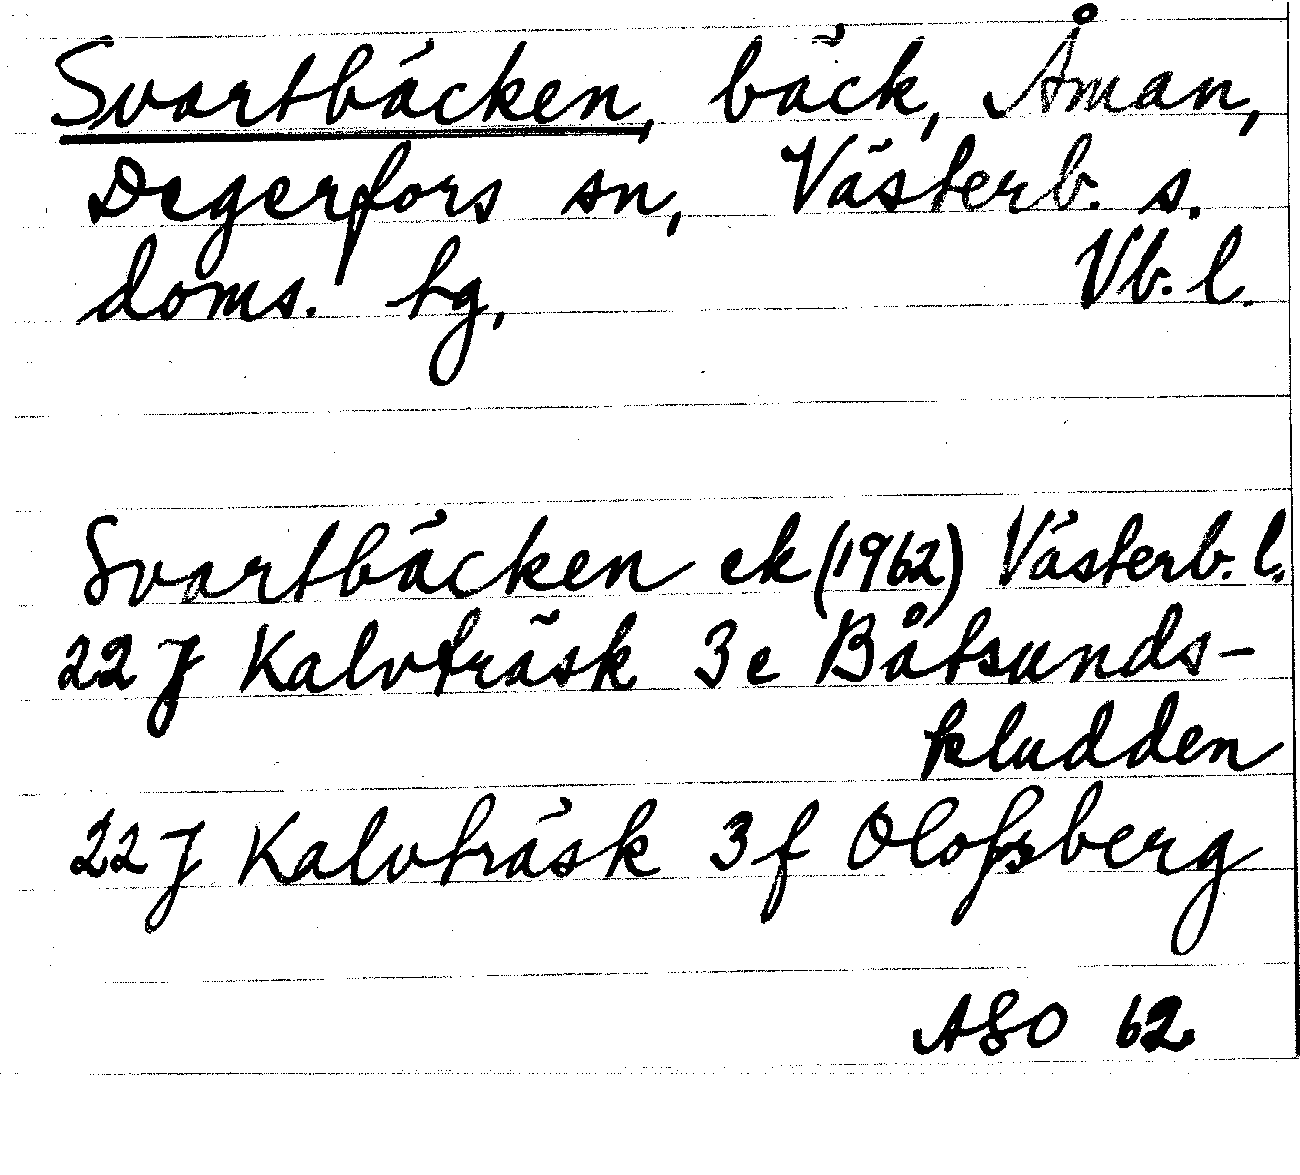 Svartbäcken, bäck, Åman,
Degerfors sn, Västerb. s.
doms. tg, Vb. l.
Svartbäcken ek (1962) Västerb. l.
22 J Kalvträsk 3 e Båtsunds-
kludden
22 J Kalvträsk 3 f Olofsberg
ASO 62